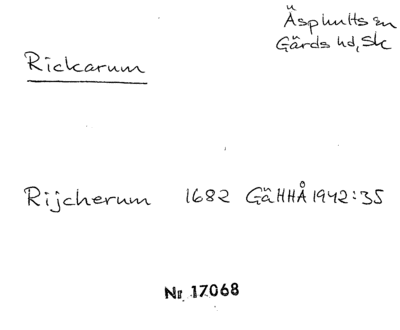 Äsphults sn
Gärds hd, Sk
Rickarum
Rijcherum 1682 GäHHÅ 1942:35
Nr 17068